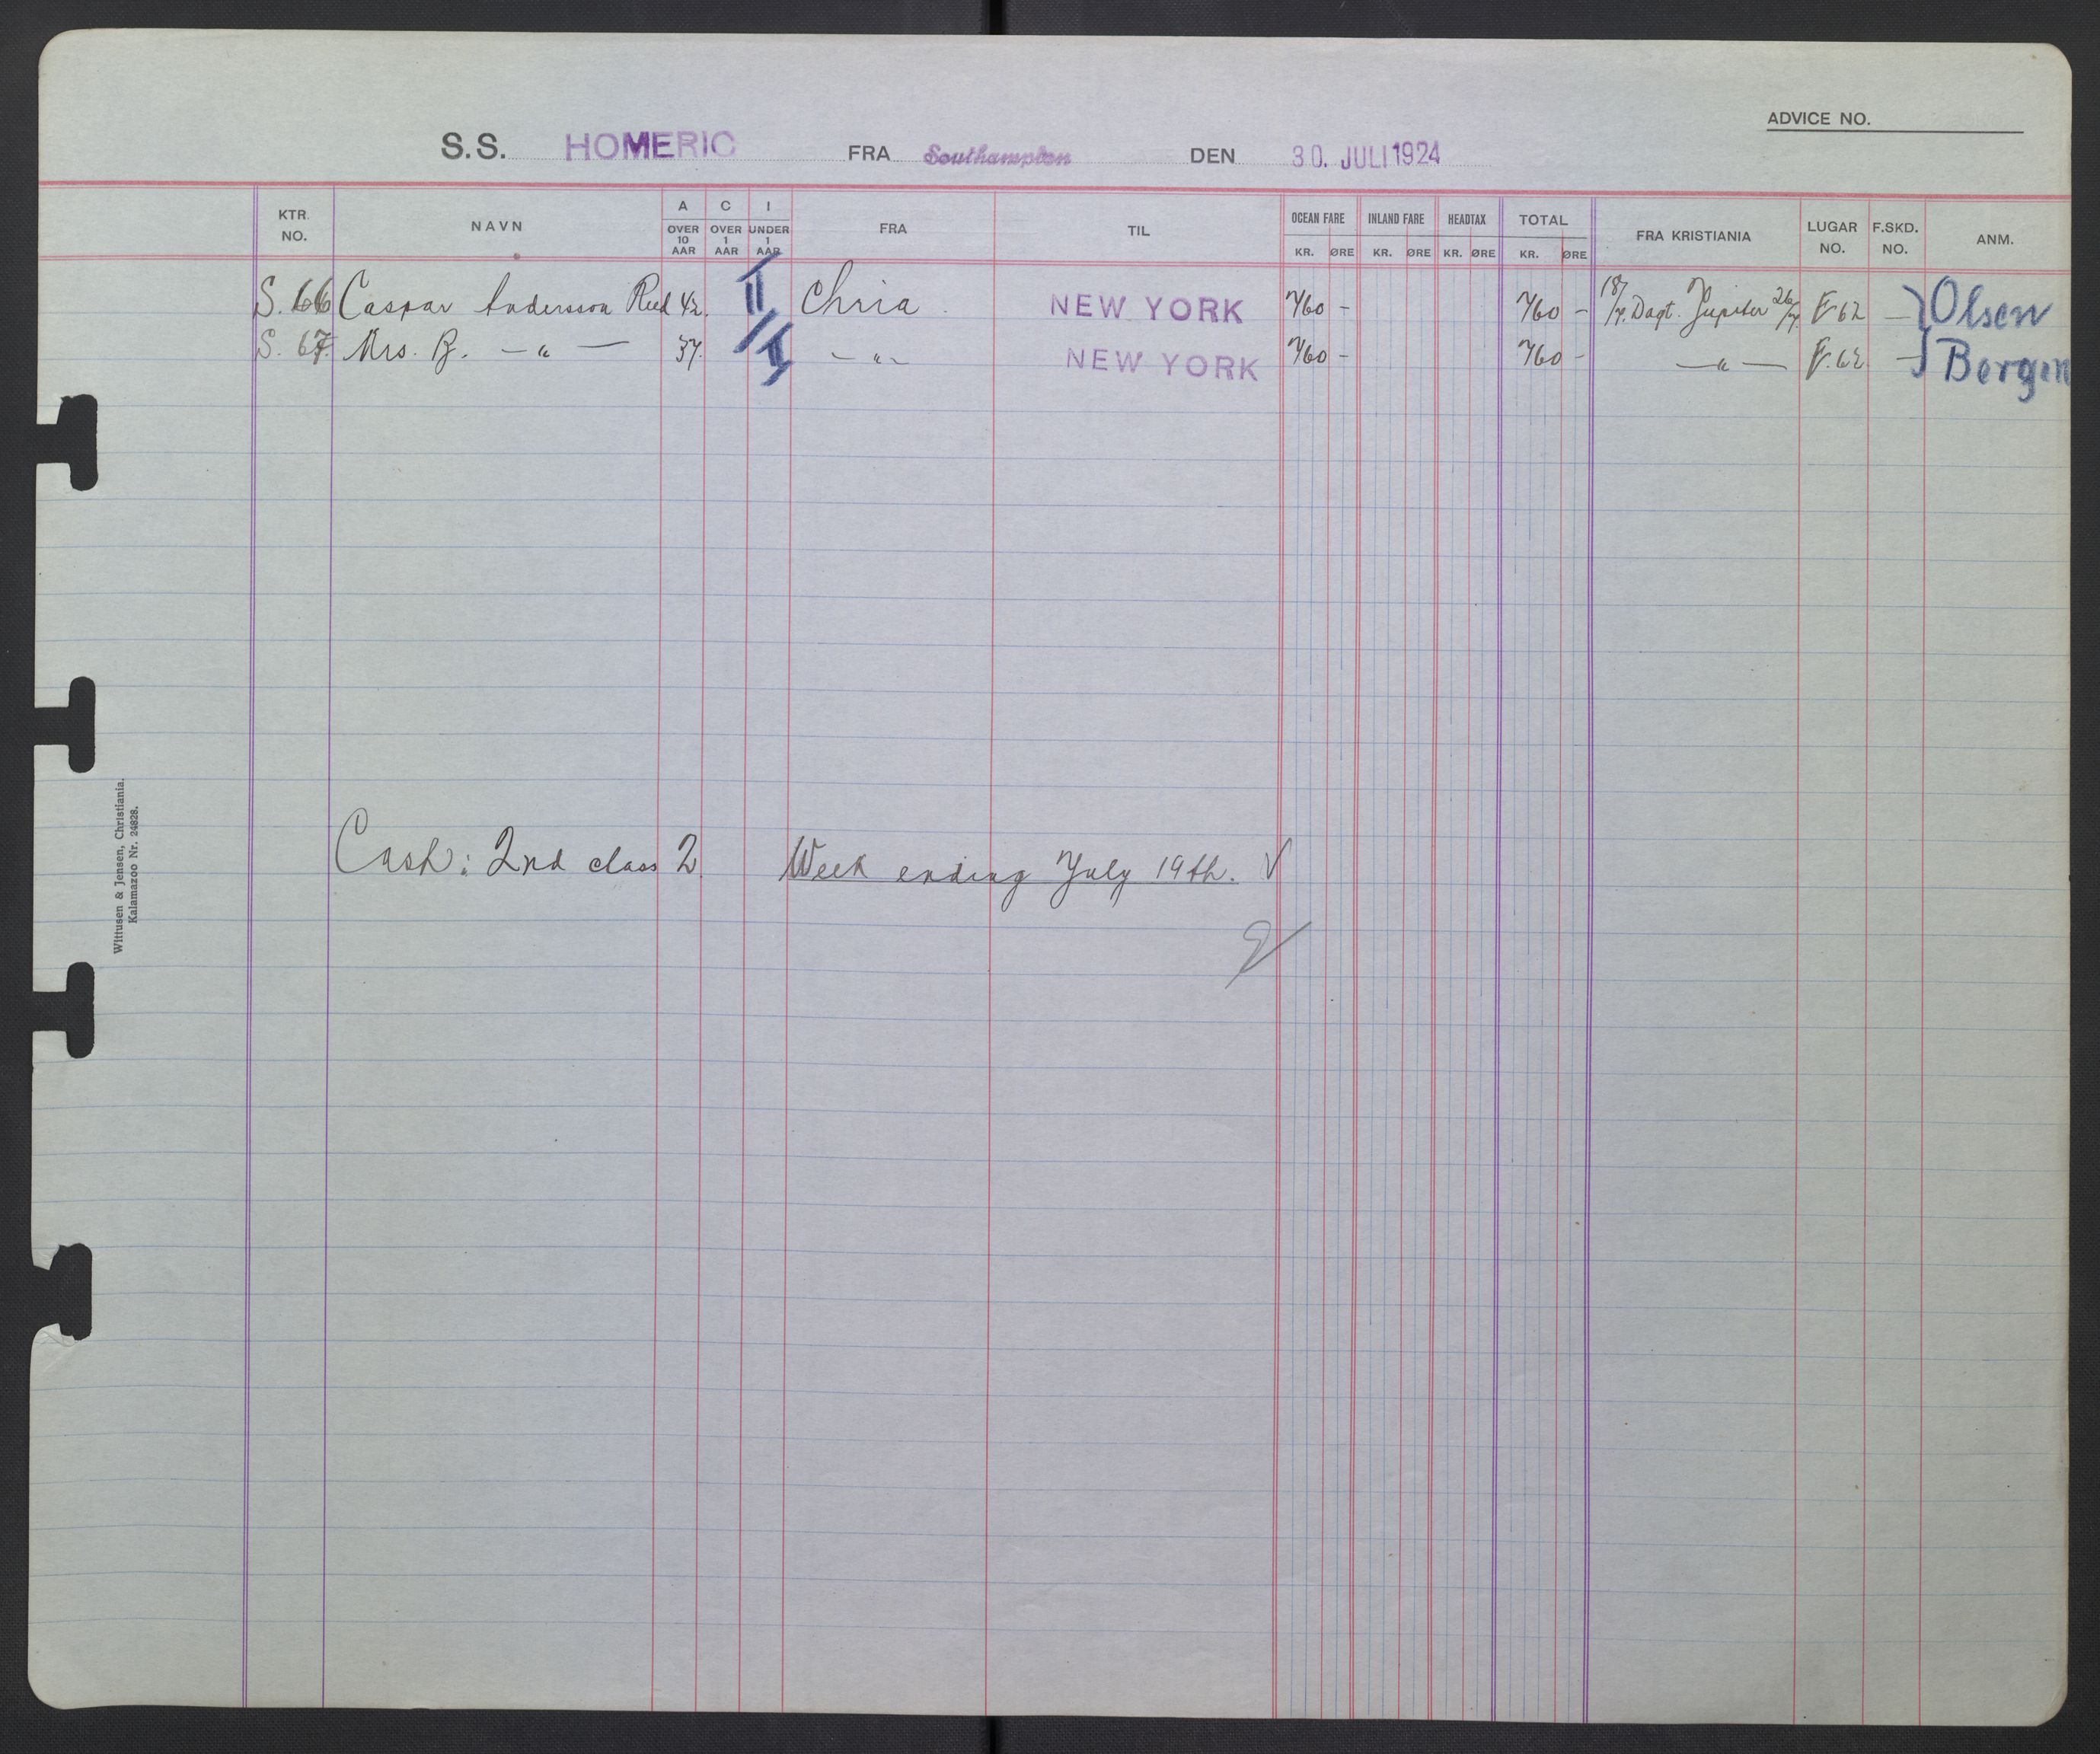 ADVICE NO.
S.S. HOMERIC FRA Southampton DEN 30. JULI 1924
KTR. NO. NAVN A OVER 10 AAR C OVER 1 AAR I UNDER 1 AAR FRA TIL OCEAN FARE KR. ØRE INLAND FARE KR. ØRE HEADTAX KR. ØRE TOTAL KR. ØRE FRA KRISTIANIA LUGAR NO. F.SKD. NO. ANM.
S. 66 Caspar Andersson Reed 42. II Chria NEW YORK 760 - 760 - 18/7. Dagt. Jupiter 26/7. F 62 - } Olsen
S. 67 Mrs. B. -"- 37. -"- NEW YORK 760 - 760 - -"- F. 62 - Bergen
Cash: 2nd class 2. Week ending July 19th. V
Wittusen & Jensen, Christiania.
Kalamazoo Nr. 24828.